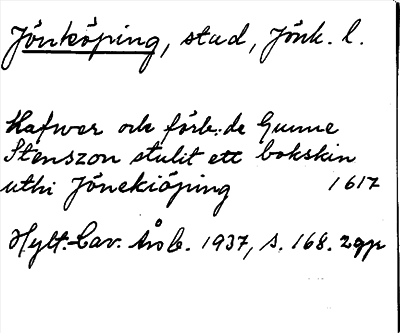 Jönköping, stad, Jönk. l.
Hafwer ock förb:de Gunne
Stenszon stulit ett bokskin
uthi Jönekiöping 1617
Hylt.-Cav. Årsb. 1937, s. 168. 2 ggr